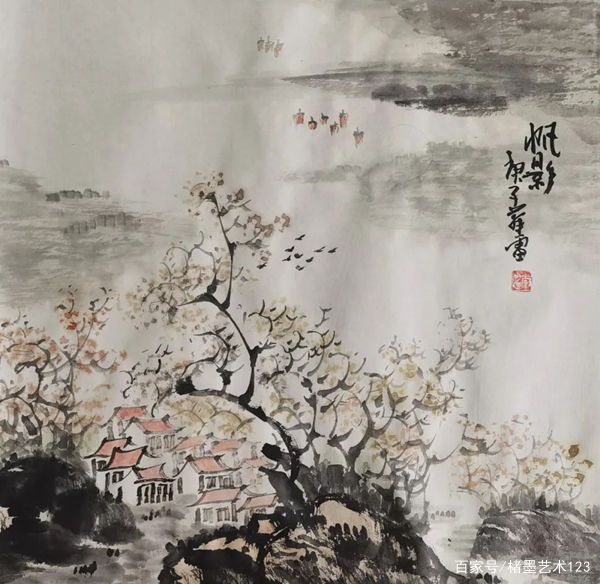 帆影
庚子
百家号/楮墨艺术123